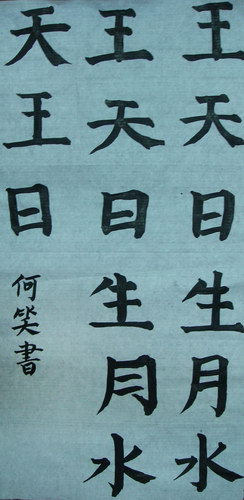 王天日生月水
王天日生月水
天王日
何笑書